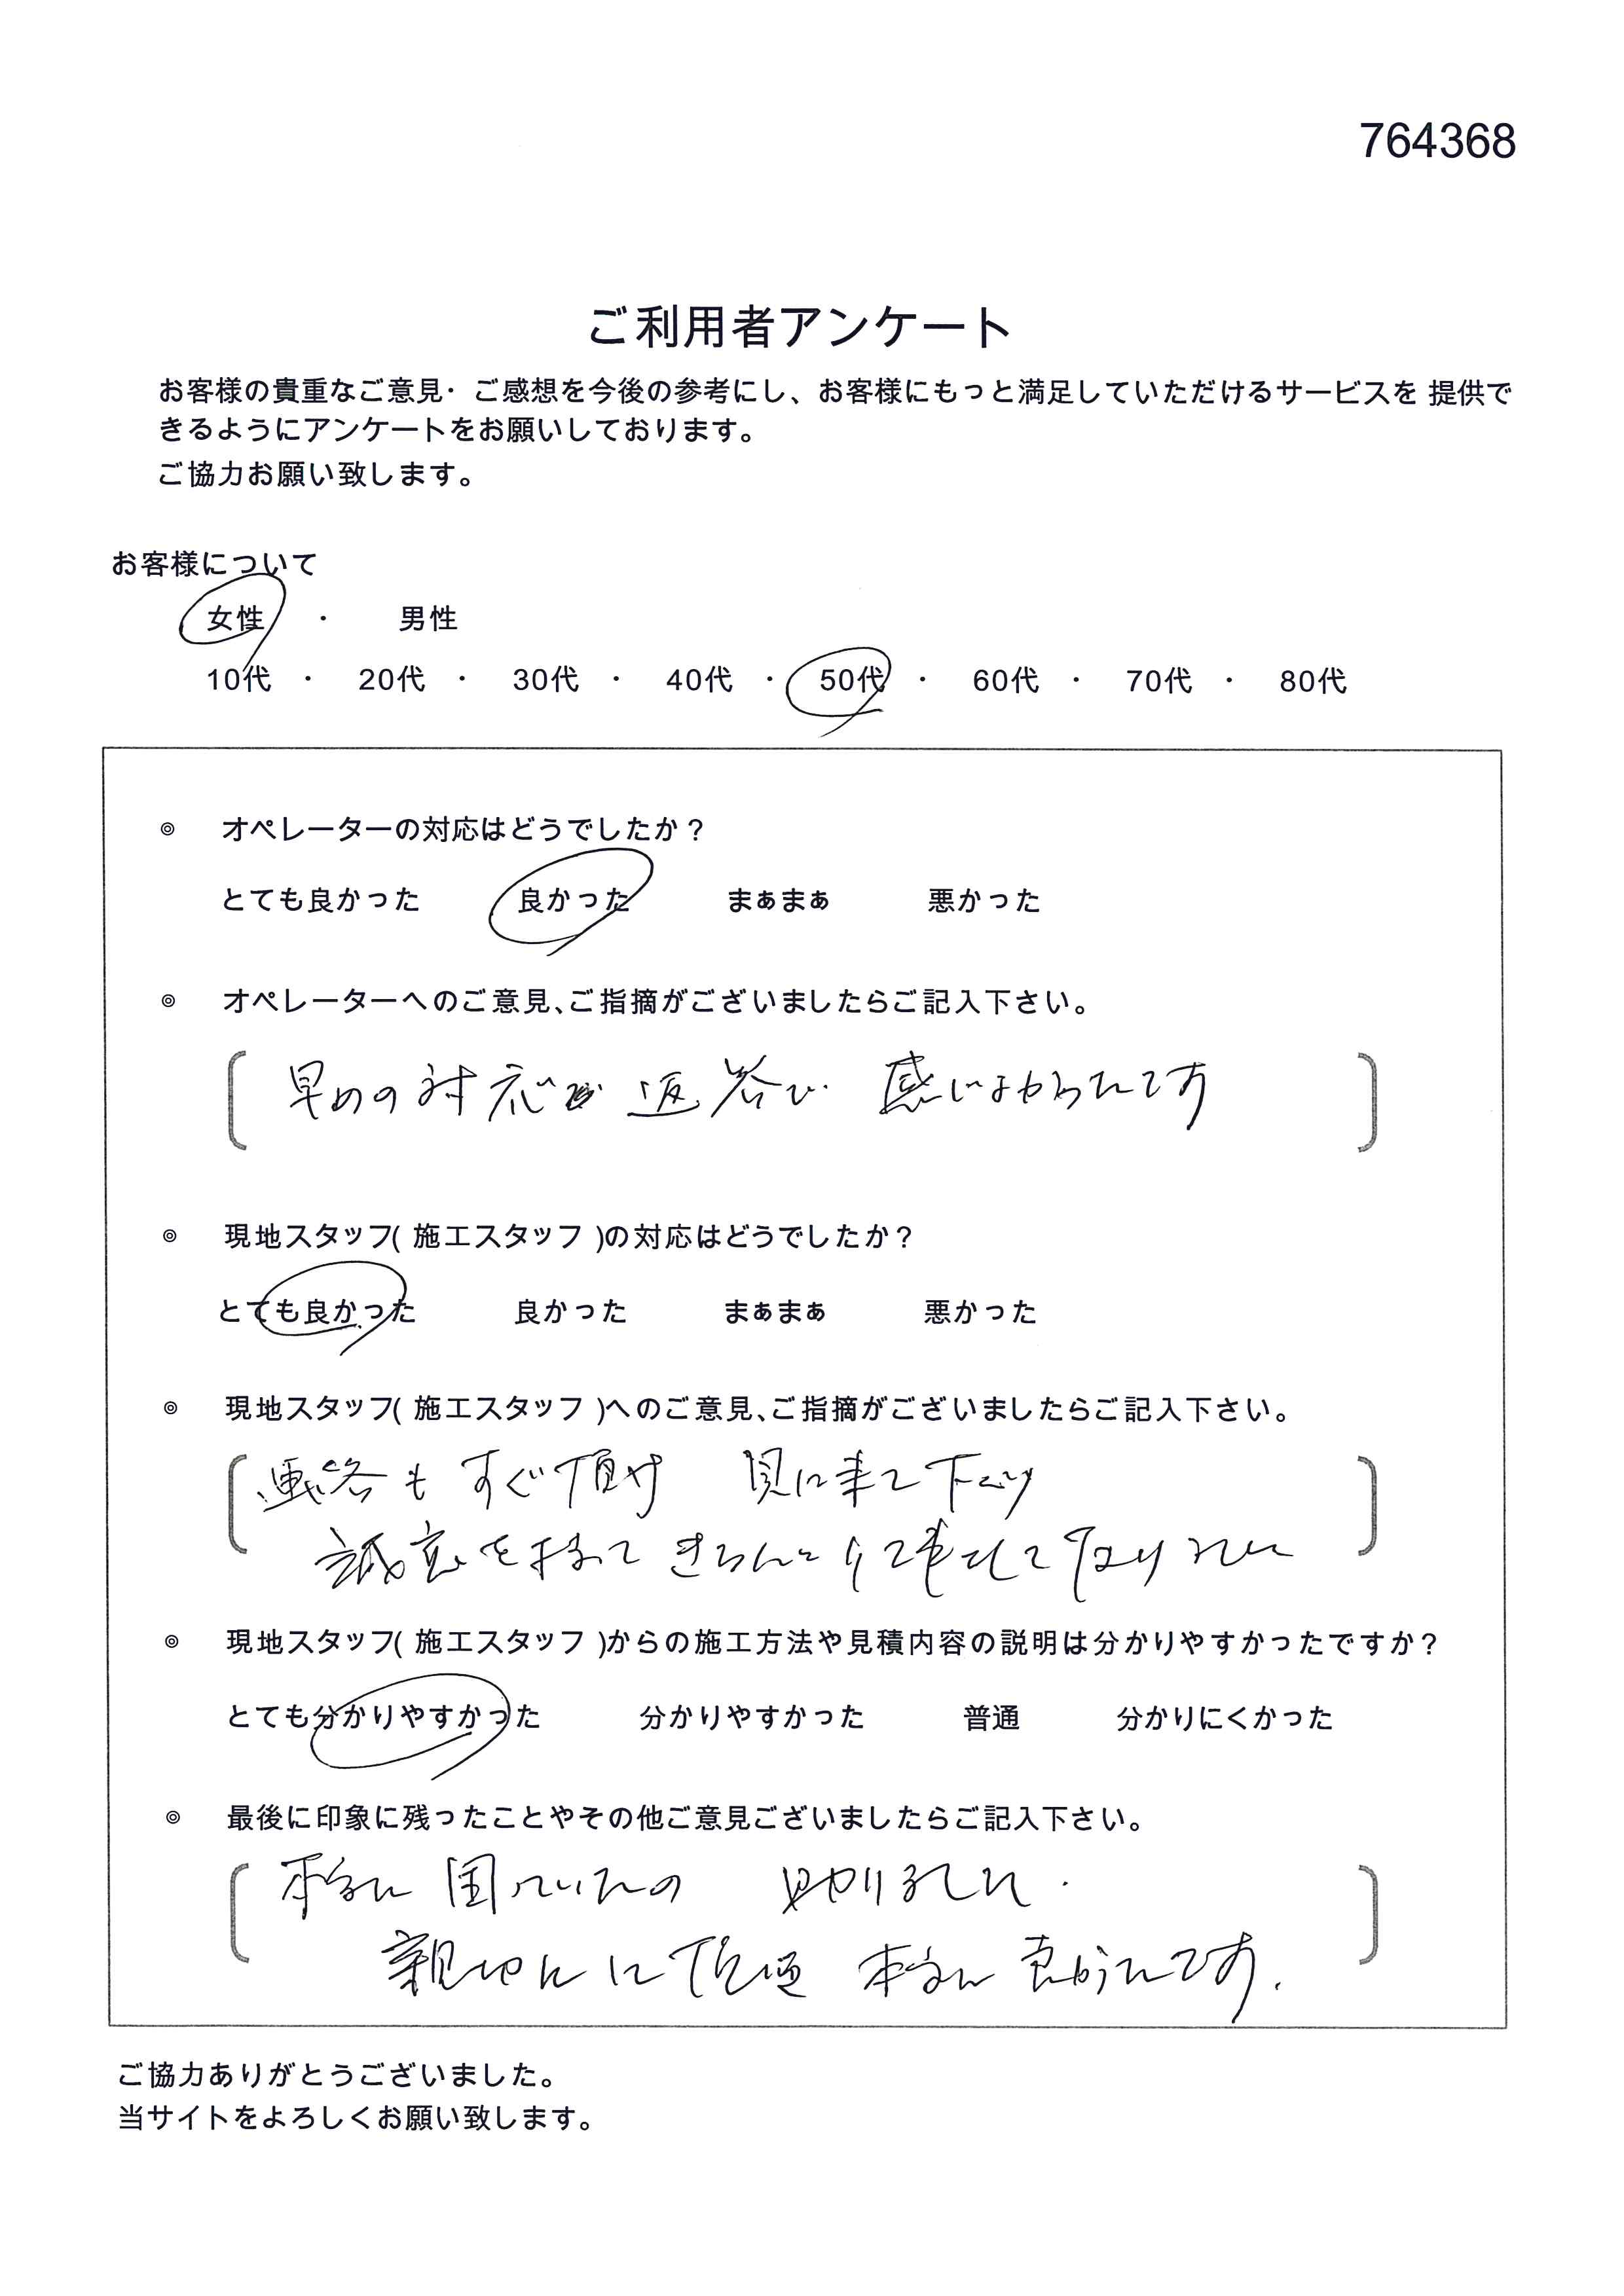 764368
ご利用者アンケート
お客様の貴重なご意見・ご感想を今後の参考にし、お客様にもっと満足していただけるサービスを 提供で
きるようにアンケートをお願いしております。
ご協力お願い致します。
お客様について
女性 ・ 男性
10代 ・ 20代 ・ 30代 ・ 40代 ・ 50代 ・ 60代 ・ 70代 ・ 80代
◎ オペレーターの対応はどうでしたか？
とても良かった 良かった まぁまぁ 悪かった
◎ オペレーターへのご意見、ご指摘がございましたらご記入下さい。
早めの対応 返答で 感じよかったです
◎ 現地スタッフ( 施工スタッフ )の対応はどうでしたか？
とても良かった 良かった まぁまぁ 悪かった
◎ 現地スタッフ( 施工スタッフ )へのご意見、ご指摘がございましたらご記入下さい。
連絡も すぐ頂け 見に来て下さり
誠意を持って きちんと
◎ 現地スタッフ( 施工スタッフ )からの施工方法や見積内容の説明は分かりやすかったですか？
とても分かりやすかった 分かりやすかった 普通 分かりにくかった
◎ 最後に印象に残ったことやその他ご意見ございましたらご記入下さい。
本当に 困っていたの 助りました.
本当に 良かったです.
ご協力ありがとうございました。
当サイトをよろしくお願い致します。